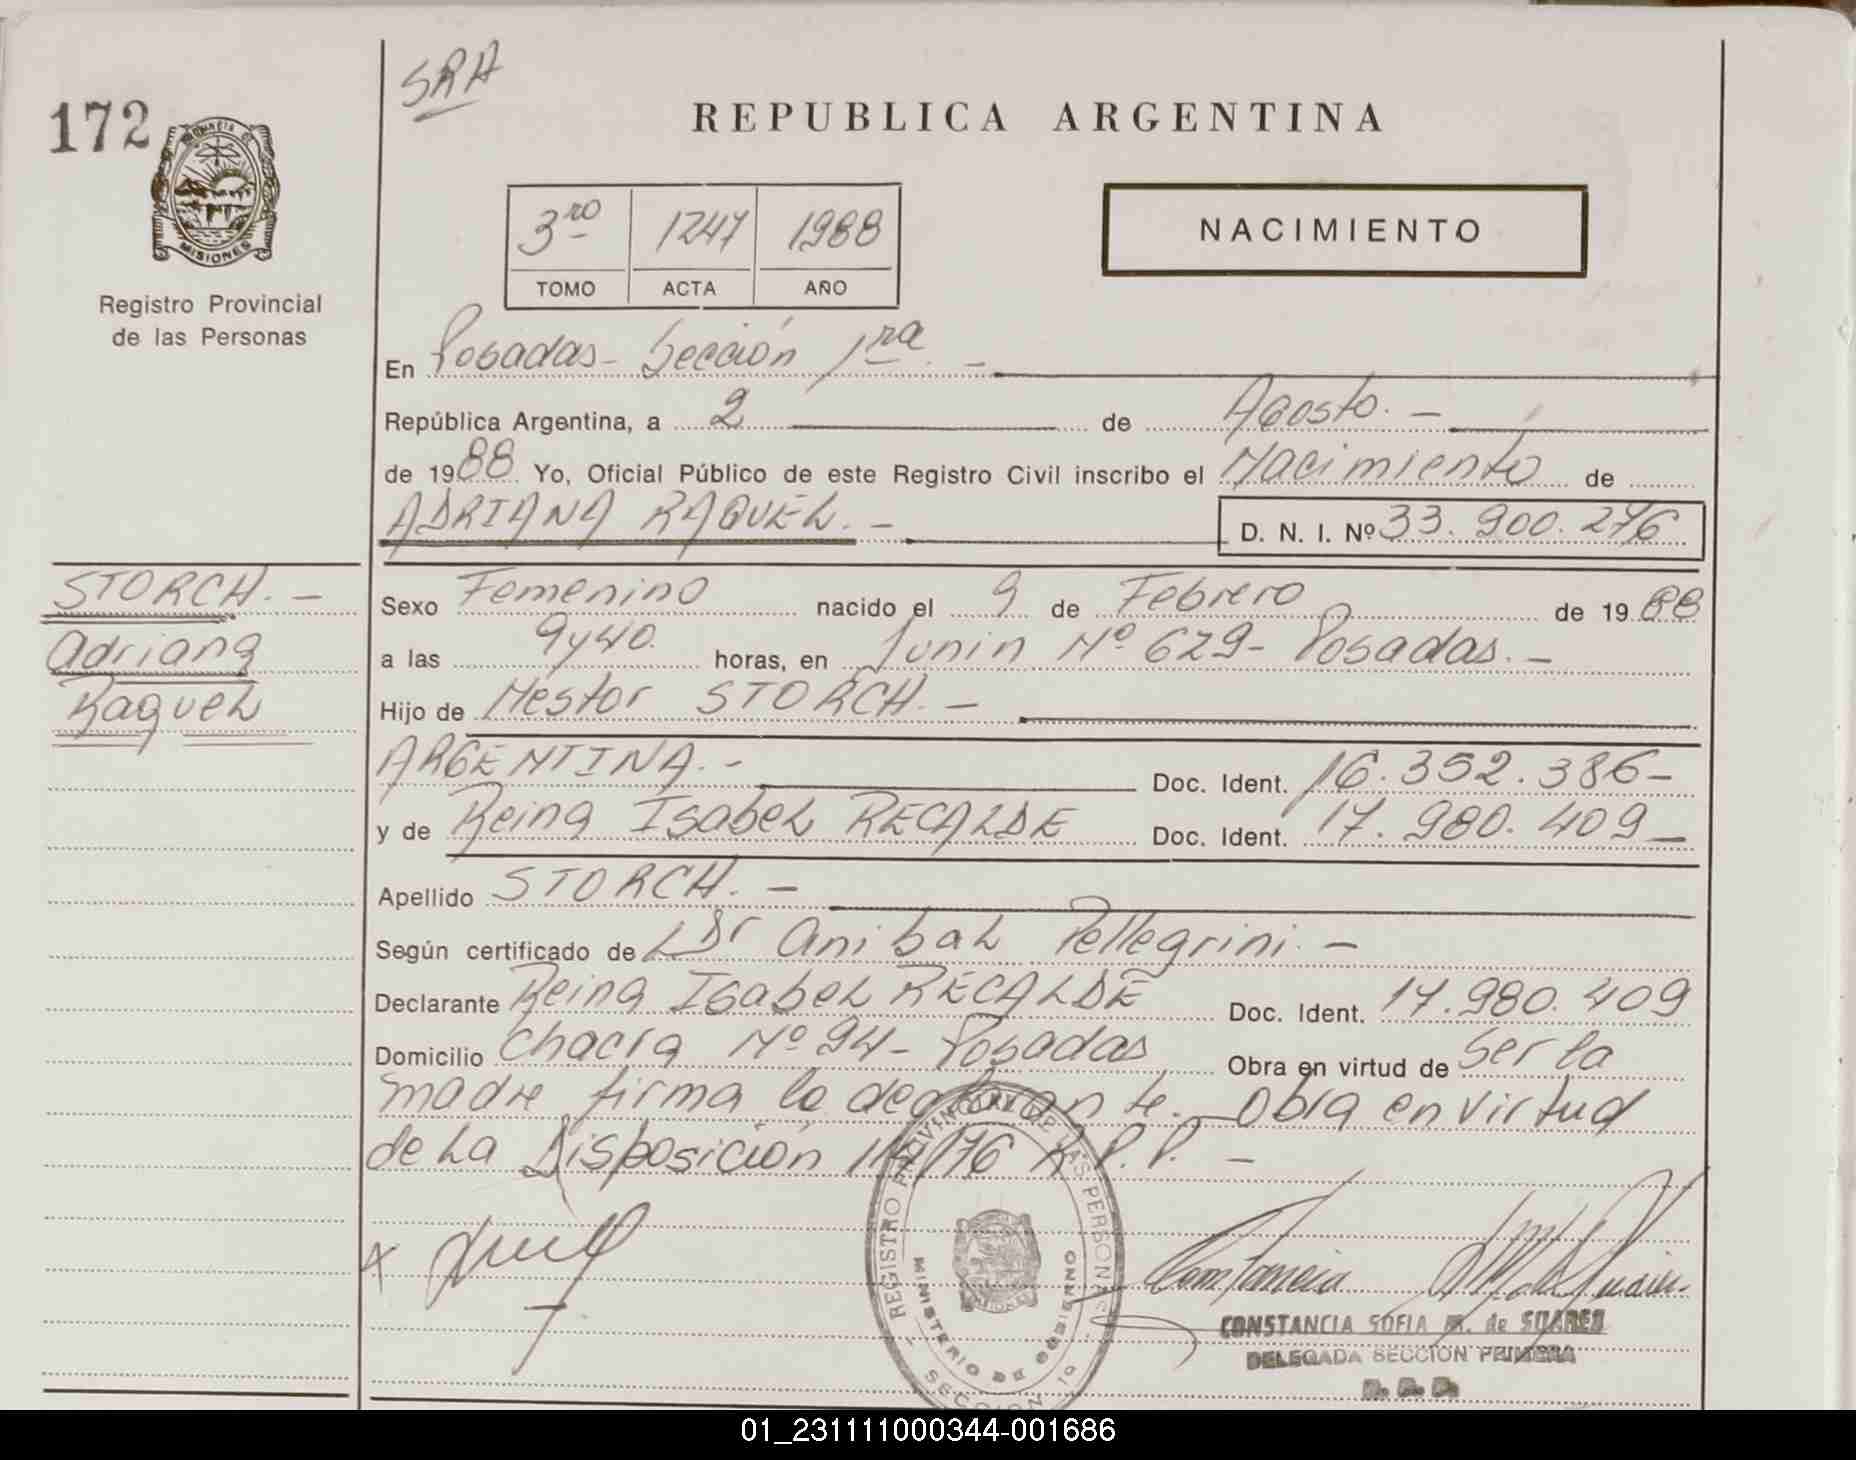 172
SRA
REPUBLICA ARGENTINA
MISIONES
Registro Provincial
de las Personas
3ro 1247 1988
TOMO ACTA AÑO
NACIMIENTO
En Posadas - Sección 1ra. -
República Argentina, a 2 de Agosto. -
de 1988 Yo, Oficial Público de este Registro Civil inscribo el Nacimiento de
ADRIANA RAQUEL. - D. N. I. Nº 33.900.276
STORCH. -
Adriana
Raquel
Sexo Femenino nacido el 9 de Febrero de 1988
a las 9y40. horas, en Junin Nº 629 - Posadas. -
Hijo de Nestor STORCH. -
ARGENTINA. - Doc. Ident. 16.352.386 -
y de Reina Isabel RECALDE Doc. Ident. 17.980.409 -
Apellido STORCH. -
Según certificado de Dr Anibal Pellegrini. -
Declarante Reina Isabel RECALDE Doc. Ident. 17.980.409
Domicilio Chacra Nº 94 - Posadas Obra en virtud de Ser la
madre firma la declarante. - Obra en virtud
de la Disposición 114/76 R.P.P. -
REGISTRO PROVINCIAL DE LAS PERSONAS
MINISTERIO DE GOBIERNO
SECCION 1a
CONSTANCIA SOFIA M. de SUAREZ
DELEGADA SECCION PRIMERA
01_231111000344-001686